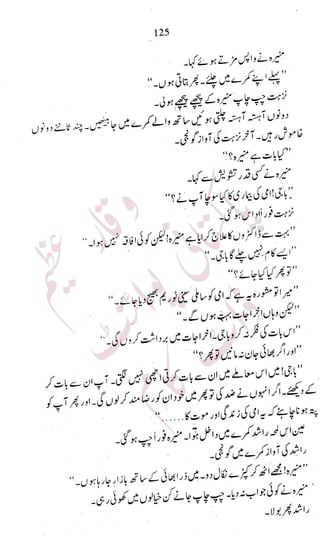 125
منیرہ نے واپس مڑتے ہوئے کہا۔
”پہلے اپنے کمرے میں چلئے۔ پھر بتاتی ہوں۔“
نزہت چپ چاپ منیرہ کے پیچھے پیچھے ہولی۔
دونوں آہستہ آہستہ چلتی ہوئیں ساتھ والے کمرے میں جا بیٹھیں۔ چند ثانئے دونوں
خاموش رہیں۔ آخر نزہت کی آواز گونجی۔
”کیا بات ہے منیرہ؟“
منیرہ نے کسی قدر تشویش سے کہا۔
”باجی! امی کی بیماری کا کیا سوچا آپ نے؟“
نزہت فوراً اداس ہو گئی۔
”بہت سے ڈاکٹروں کا علاج کرایا ہے منیرہ! لیکن کوئی افاقہ نہیں ہوا۔“
”ایسے کام نہیں چلے گا باجی۔“
”تو پھر کیا کیا جائے؟“
”میرا تو مشورہ یہ ہے کہ امی کو ساملی سینی ٹوریم بھیج دیا جائے۔“
”لیکن وہاں اخراجات بہت ہوں گے۔“
”اس بات کی فکر نہ کرو باجی۔ اخراجات میں برداشت کروں گی۔“
”اور اگر بھائی جان نہ مانیں تو پھر؟“
”باجی! میں اس معاملے میں ان سے بات کرتی اچھی نہیں لگتی۔ آپ ان سے بات کر
کے دیکھئے۔ اگر انہوں نے ضد کی تو پھر میں خود ان کو رضامند کر لوں گی۔ اور پھر آپ کو
پتہ ہونا چاہئے کہ یہ امی کی زندگی اور موت کا......“
عین اس لمحہ راشد کمرے میں داخل ہوا۔ منیرہ فوراً چپ ہو گئی۔
راشد کی آواز کمرے میں گونجی۔
”منیرہ! مجھے اٹھ کر کپڑے نکال دو۔ میں ذرا بھائی کے ساتھ بازار جا رہا ہوں۔“
منیرہ نے کوئی جواب نہ دیا۔ چپ چاپ جانے کن خیالوں میں کھوئی رہی۔
راشد پھر بولا۔
وقار عظیم
پاکستانی پوائنٹ